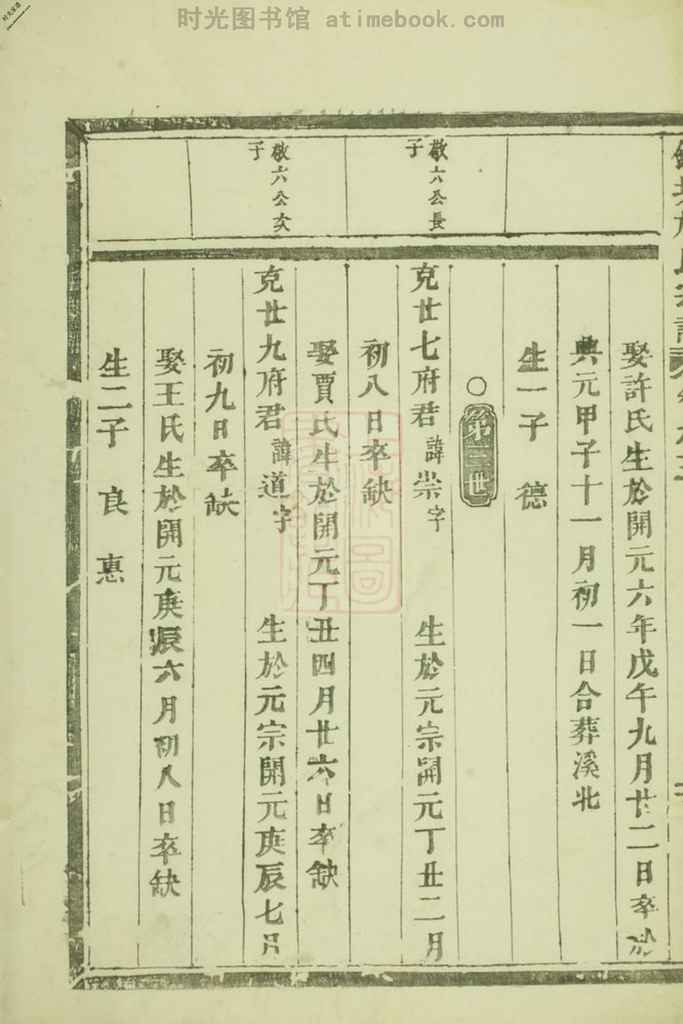 时光图书馆 atimebook.com
娶許氏生於開元六年戊午九月廿二日卒於
興元甲子十一月初一日合葬溪北
生一子 德
○第三世
敬六公長子
克世七府君諱崇字 生於元宗開元丁丑二月
初八日卒缺
娶賈氏生於開元丁丑四月廿六日卒缺
敬六公次子
克世九府君諱道字 生於元宗開元庚辰七月
初九日卒缺
娶王氏生於開元庚辰六月初八日卒缺
生二子 良 惠